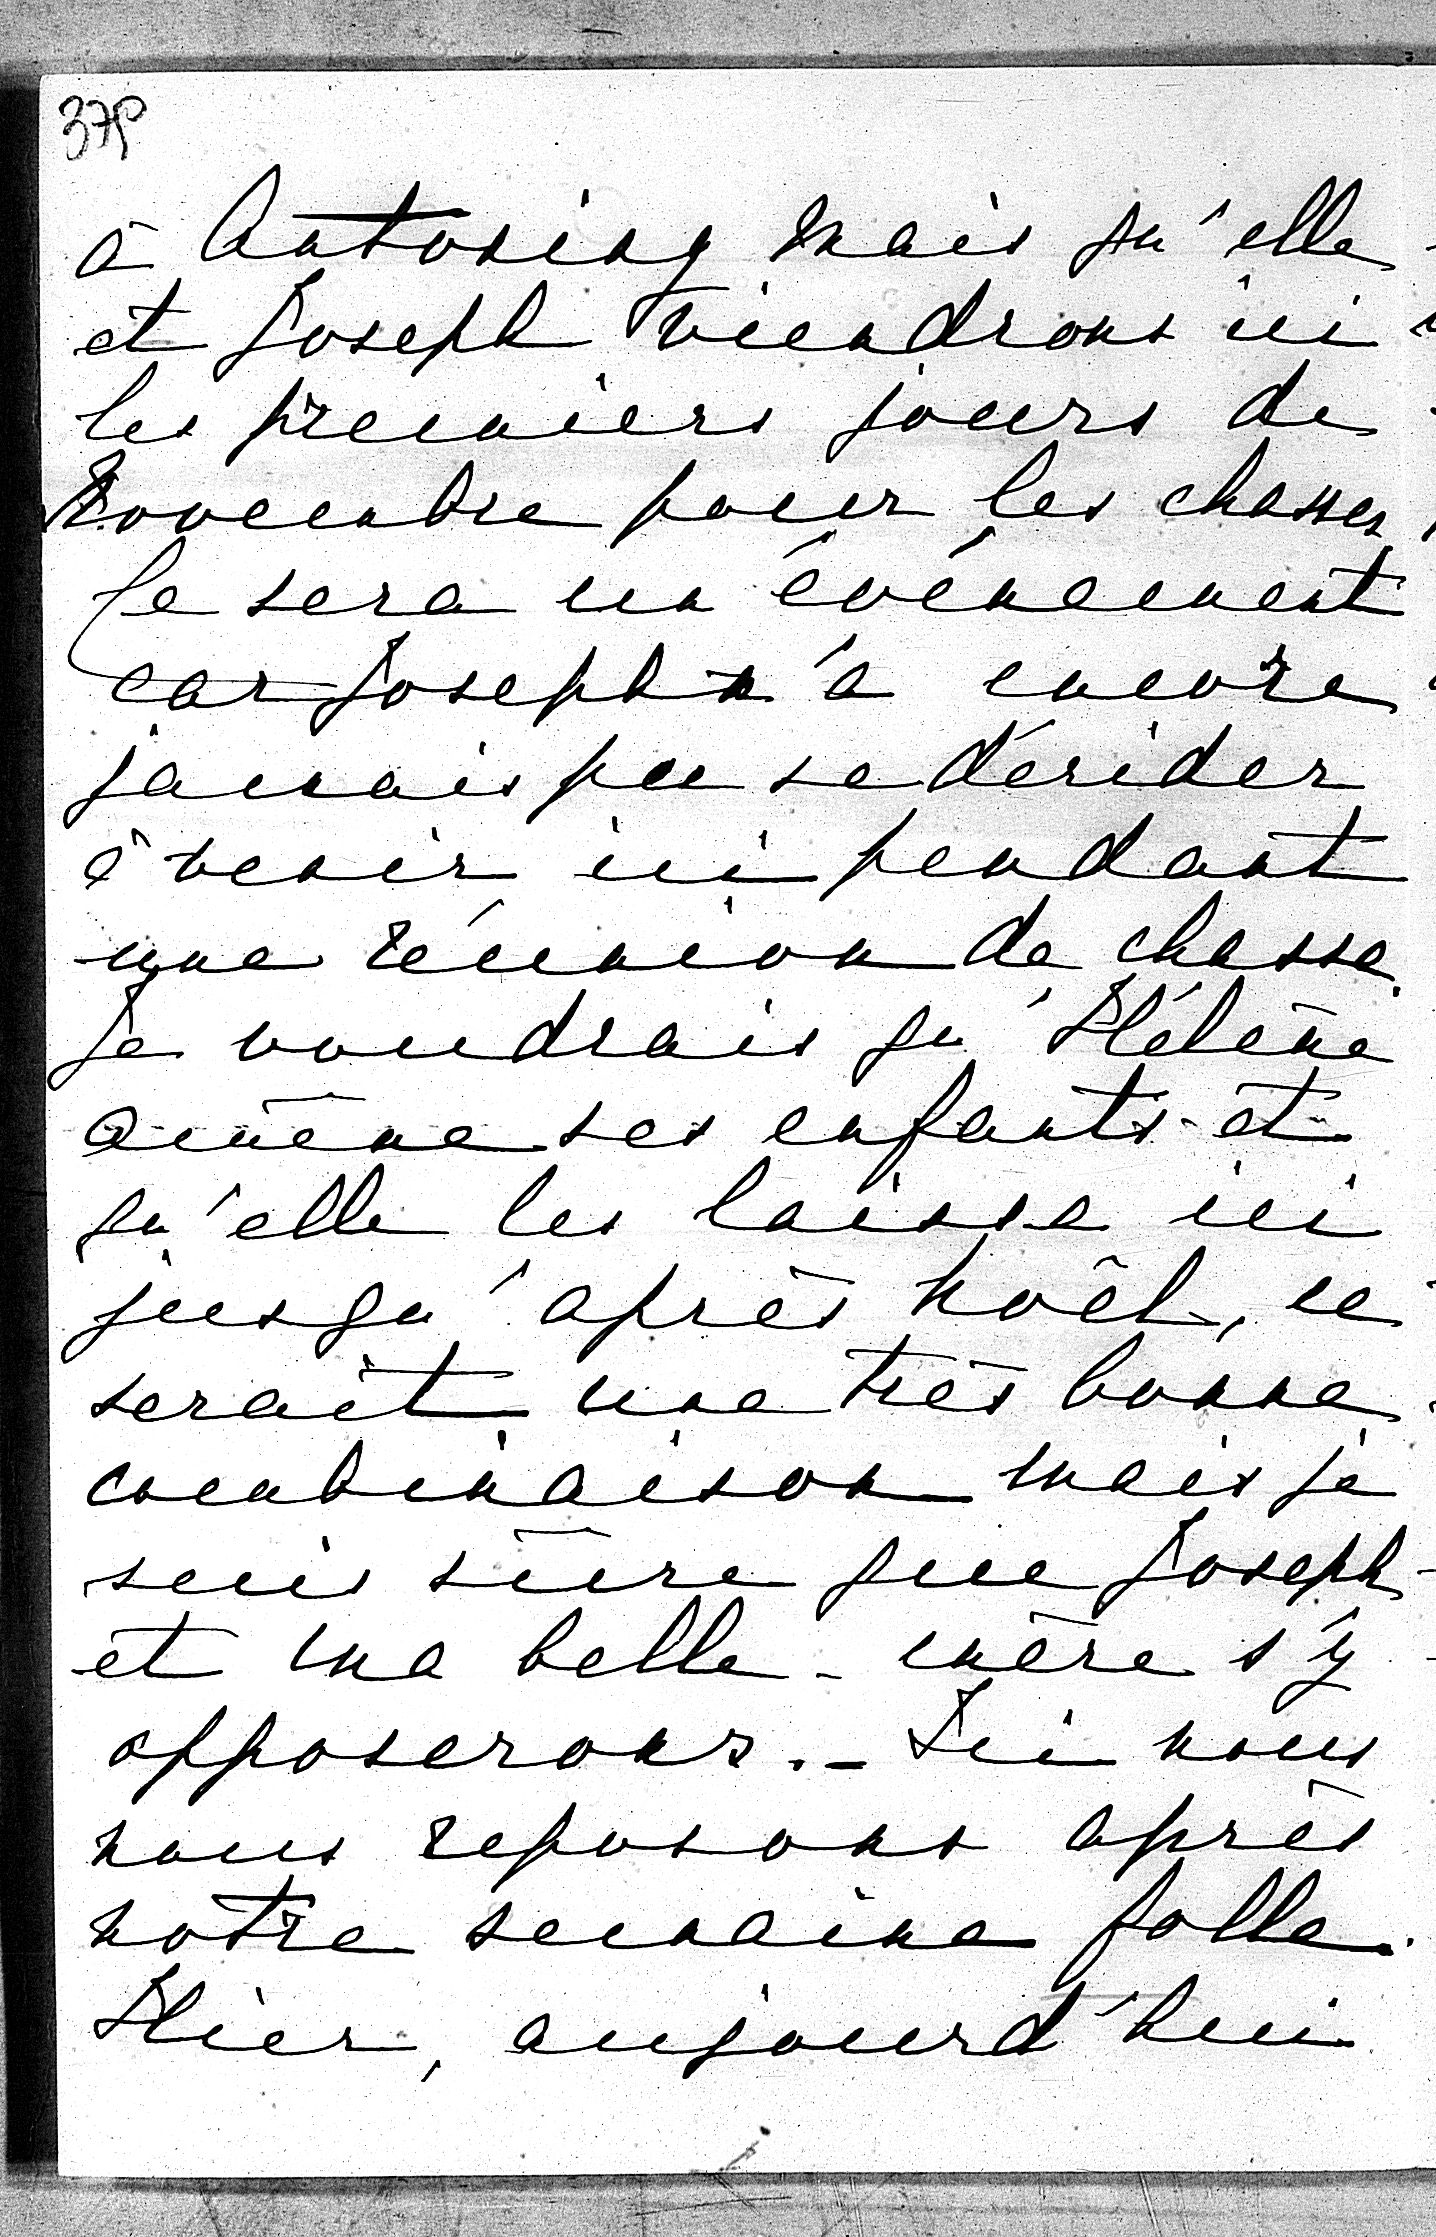 à Antoniny mais qu'elle
et Joseph viendrons ici
les premiers jours de
Novembre pour les chasses,
Ce sera un événement
car Joseph n'a encore
jamais pu se décider
à venir ici pendant
une réunion de chasse.
Je voudrais qu'Hélène
amène ses enfants et
qu'elle les laisse ici
jusqu'après Noël, ce
serait une très bonne
combinaison mais je
suis sûre que Joseph
et ma belle-mère s'y
opposerons. – Ici nous
nous reposons après
notre semaine folle.
Hier, aujourd'hui